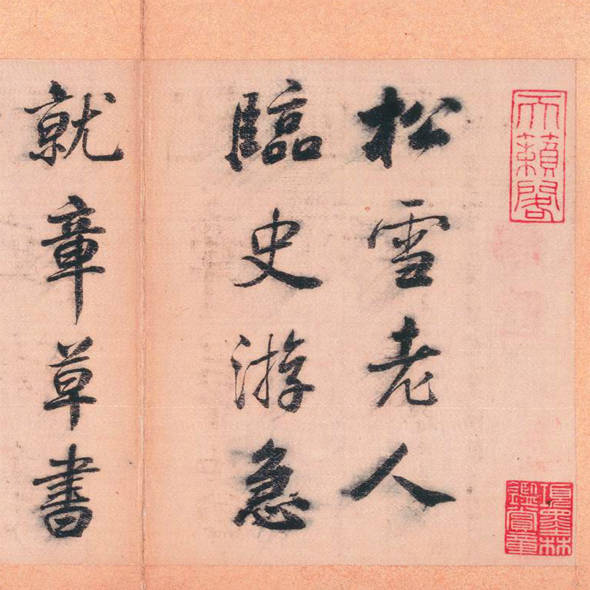 天籟閣
松雪老人
臨史游急
就章草書
項墨林鑑賞章